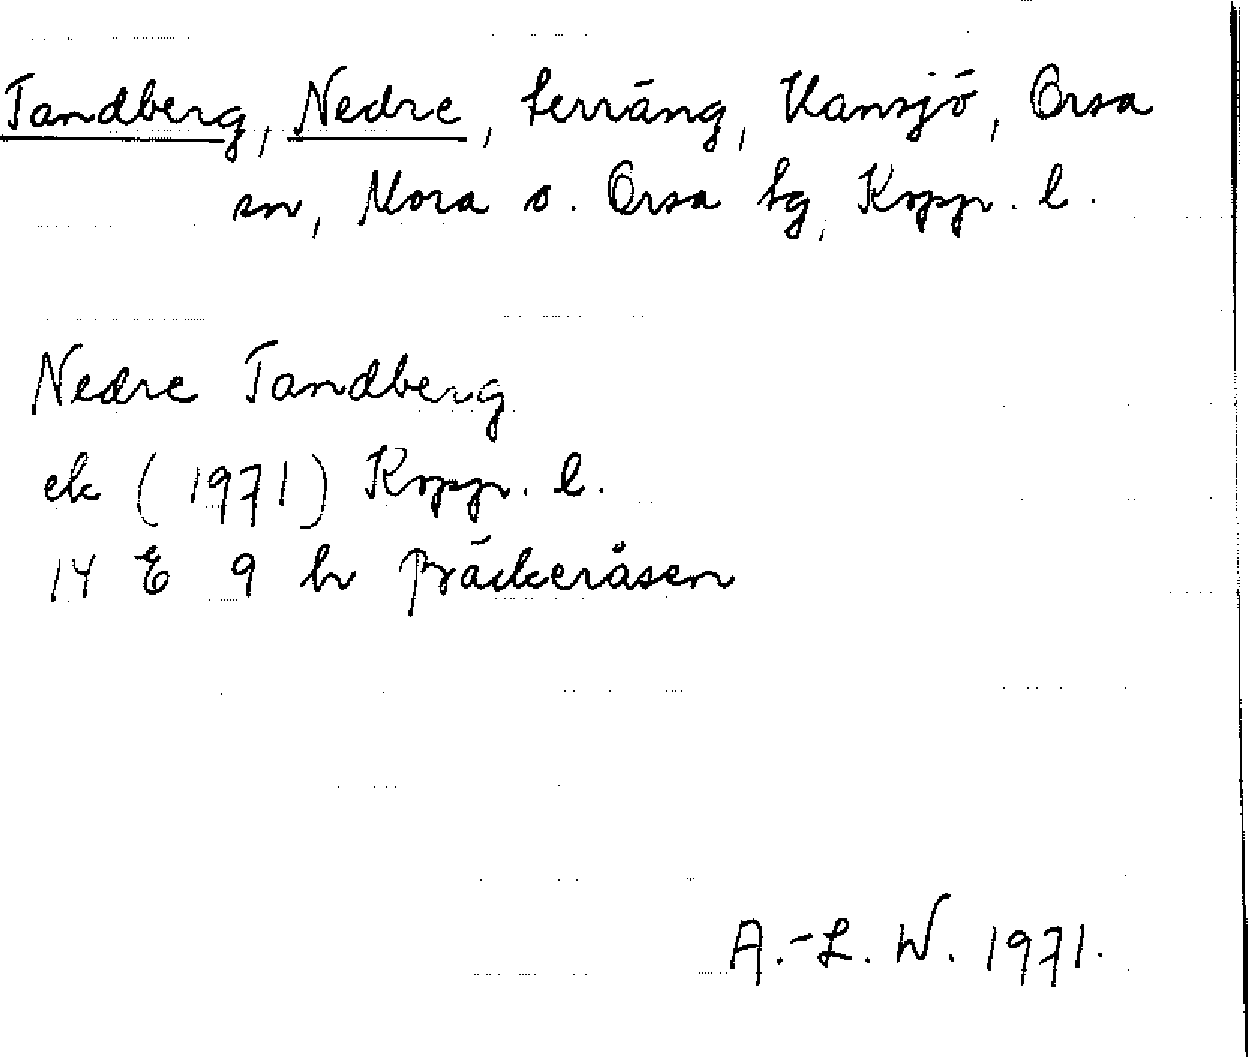 Tandberg, Nedre, terräng, Hansjö, Orsa
sn, Mora o. Orsa tg, Kopp. l.
Nedre Tandberg
ek (1971) Kopp. l.
14 E 9 h Bäckeråsen
A.-L. W. 1971.